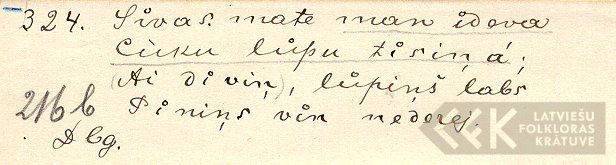 324. Sivas mate man ideva
Cūku lūpu tīsiņá;
(Ai diviņ), lūpiņš labs
216 b Piniņs vin nederej.
Dbg.
LATVIEŠU
FOLKLORAS
KRĀTUVE